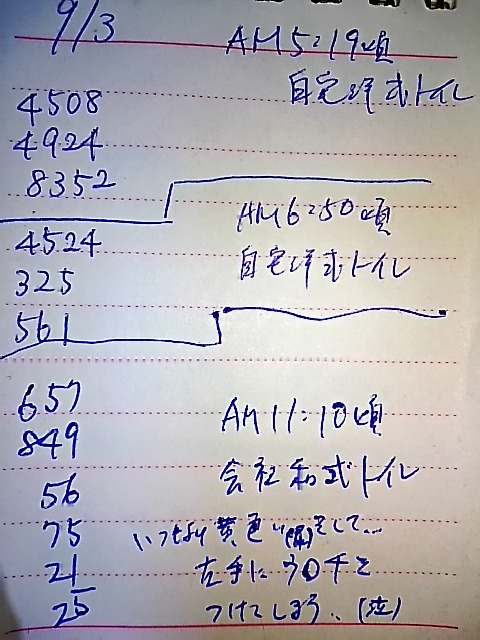 9/3
AM5:19頃
自宅洋式トイレ
4508
4924
8352
AM6:50頃
自宅洋式トイレ
4524
325
561
657
849
56
75
21
25
AM11:10頃
会社和式トイレ
いつもより黄色い
して…
左手にウンチを
つけてしまう、(泣)